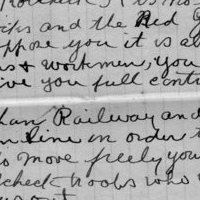 and the Red
oppose you it is a
& workmen, you
ive you full cont
han Railway and
n line in order t
o move freely you
check troops who